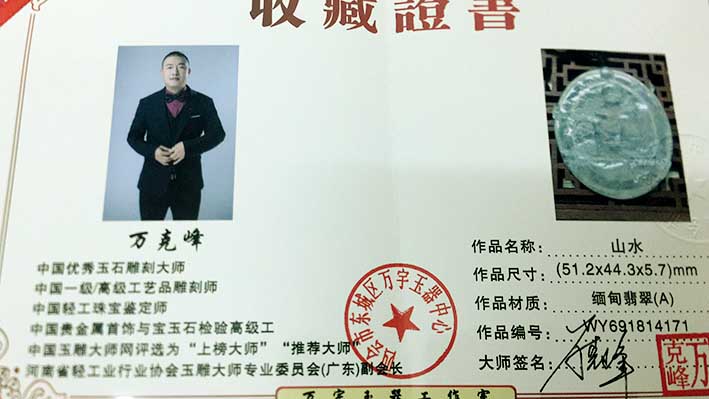 收藏證書
万克峰
中国优秀玉石雕刻大师
中国一级/高级工艺品雕刻师
中国轻工珠宝鉴定师
中国贵金属首饰与宝玉石检验高级工
中国玉雕大师网评选为“上榜大师” “推荐大师”
河南省轻工业行业协会玉雕大师专业委员会(广东)副会长
四会市东城区万宇玉器中心
作品名称: 山水
作品尺寸: (51.2x44.3x5.7)mm
作品材质: 缅甸翡翠(A)
作品编号: WY691814171
大师签名:
万克峰
万宇玉器工作室